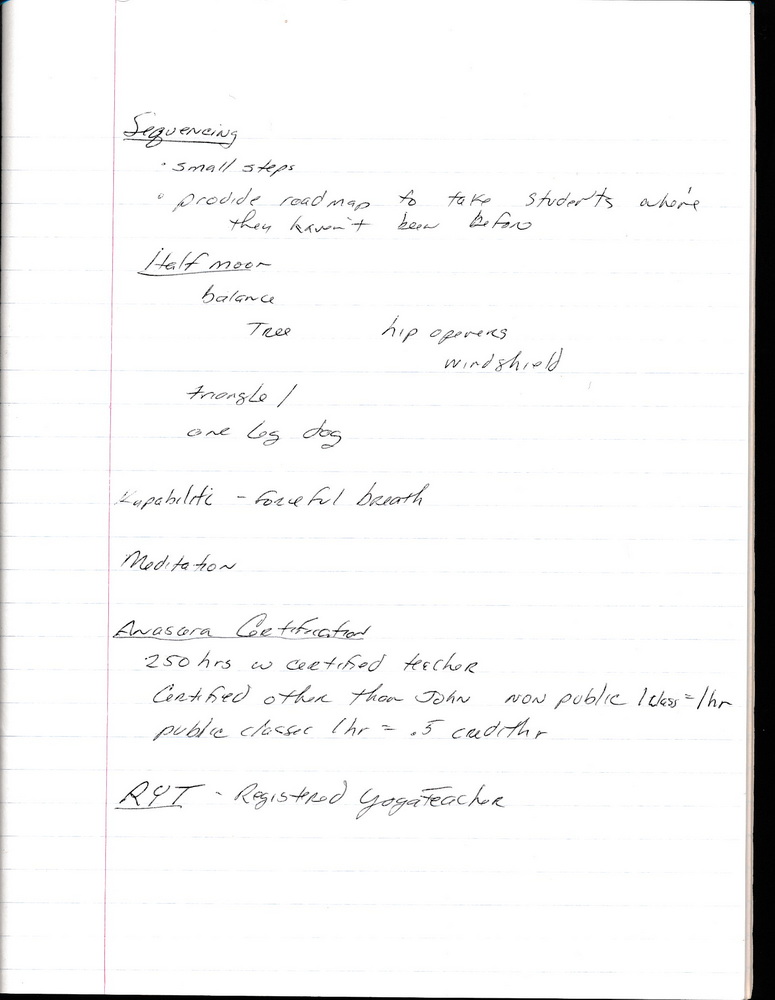 Sequencing
• small steps
• provide roadmap to take students where
they haven't been before
Half moon
balance
Tree hip openers
windshield
triangle /
one leg dog
Kapabilitic - forceful breath
Meditation
Anascara Certification
250 hrs w certified teacher
Certified other than John non public 1 class = 1 hr
public classes 1 hr = .5 credit hr
RYT - Registered Yoga Teacher